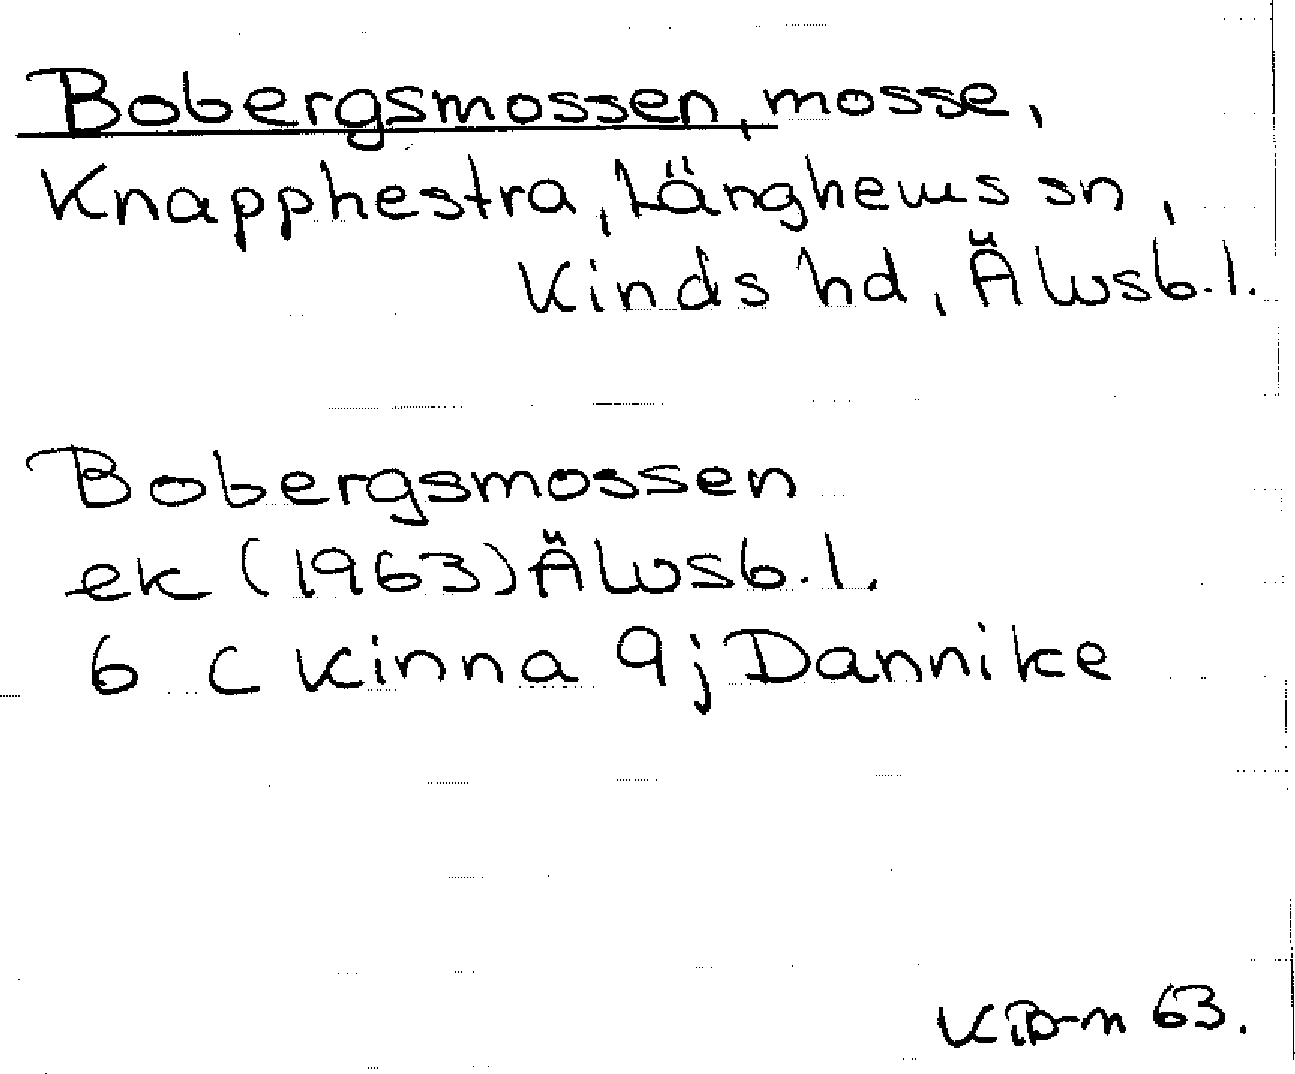 Bobergsmossen, mosse,
Knapphestra, Länghems sn,
Kinds hd, Älvsb. l.
Bobergsmossen
ek (1963) Älvsb. l.
6 C Kinna 9j Dannike
63.